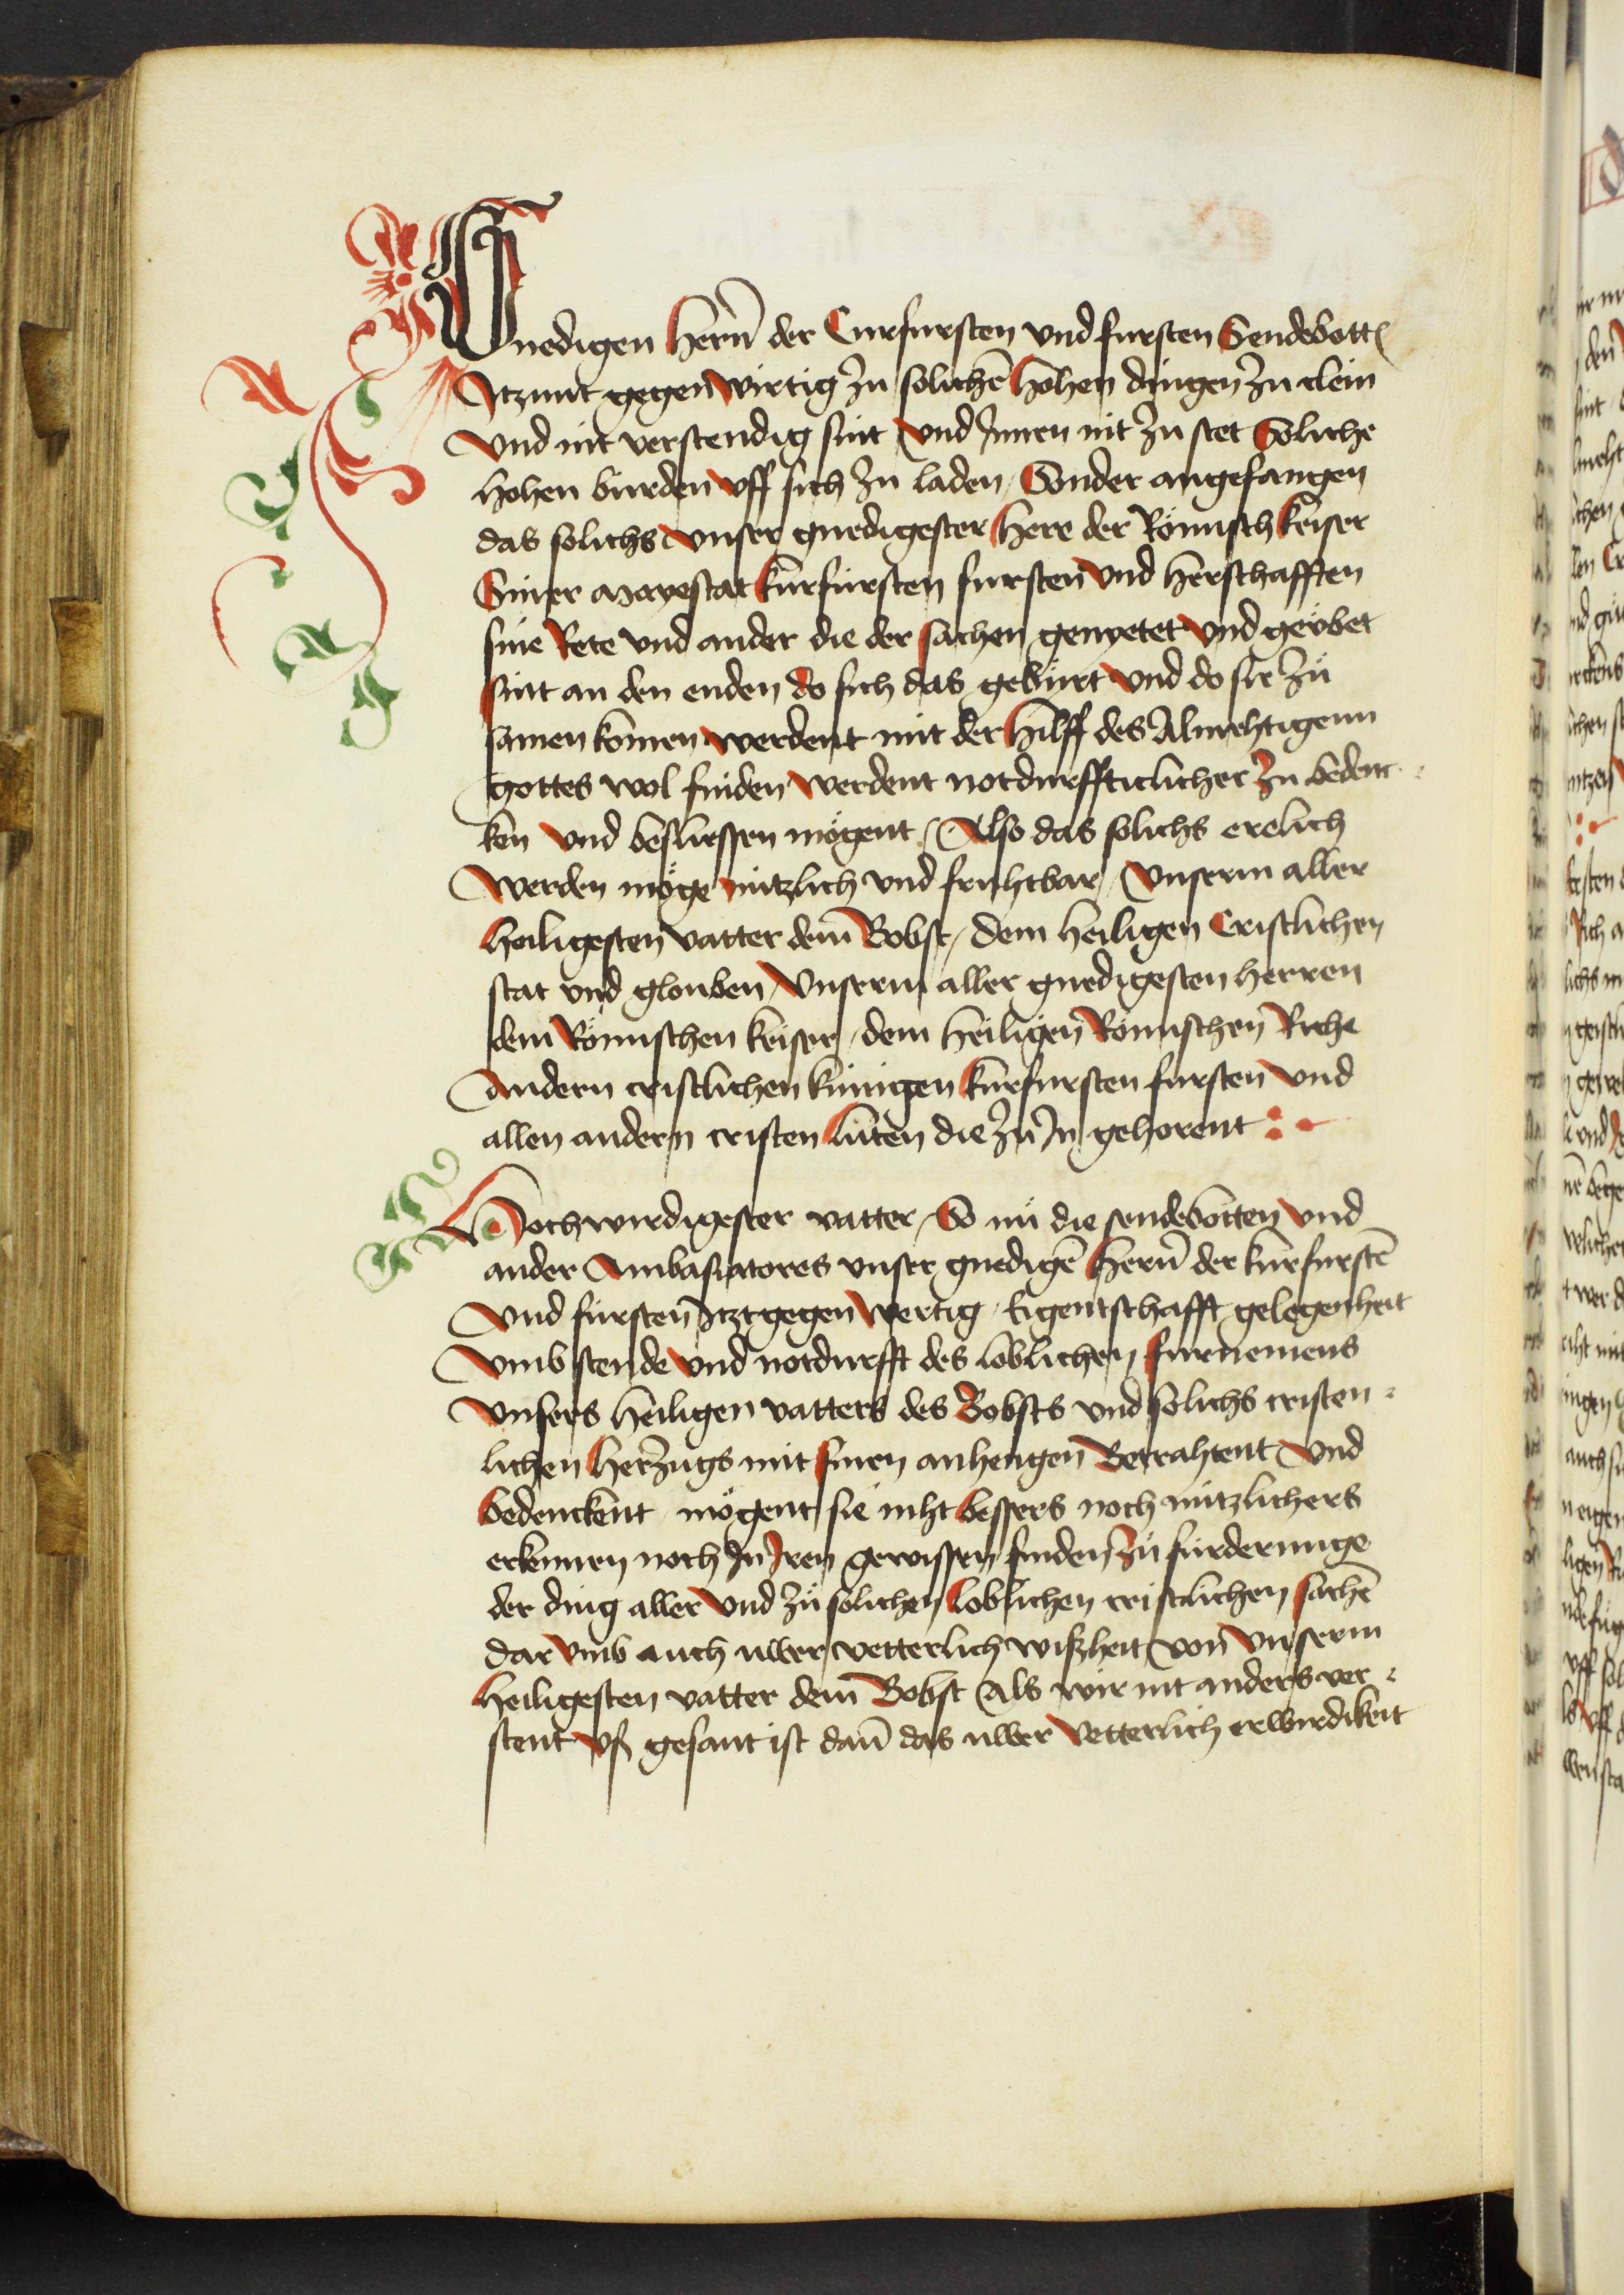 Gnedigen Hern̄ der Curfursten vnd fursten Sendebott
Itzunt gegen wirtig zu solichē hohen dingen zu clein
Vnd nit verstendig sint Vnd Innen nit zu stet Soliche
hohen burden vff sich zu laden / Sonder angefangen
das solichs vnser gnedigester Here der Römisch keiser
Siner mayestat kurfursten fursten Vnd Herschafften
sine Rete vnd ander die der sachen genyetet Vnd geübet
sint an den enden do sich das gebürt Vnd do sie zů
samen komen werdent mit der Hilff des Almehtigenn
gottes wol finden werdent notdurffticlicher zu beden-
ken vnd besliessen mögent / Also das solichs erelich
werden möge nützlich vnd fruhtbar / Vnserm aller
heiligesten vatter dem Bobst / dem heiligen Cristlichen
stat vnd glouben / Vnserm aller gnedigesten herren
dem Römischen keiser / dem heiligen Römischen Riche
Andern cristlichen künigen kurfursten fursten Vnd
allen andern cristen lüten die zů In gehorent
Hochwirdigester vatter / So nů die sendebotten vnd
ander Ambasiatores vnser gnedigē Hern̄ der kurfurstē
Vnd fursten Itzt gegen wertig / Eigentschafft gelegenheit
Vmbstende vnd notdurfft des loblichen furnemens
Vnsers heiligen vatters des Bobsts vnd solichs cristen-
lichen Herzugs mit sinen anhengen Betrahtent Vnd
bedenckent / mögent sie niht bessers noch nützlichers
erkennen noch In Iren gewissen finden zů fürderunge
der ding aller Vnd zů solichen loblichen cristlichen sachē
dar vmb auch uwer vetterlich wißheit von Vnserm
heiligesten vatter dem Bobst Als wir nit anders ver-
stent vß gesant ist dan̄ das uwer vetterlich erwirdikeit